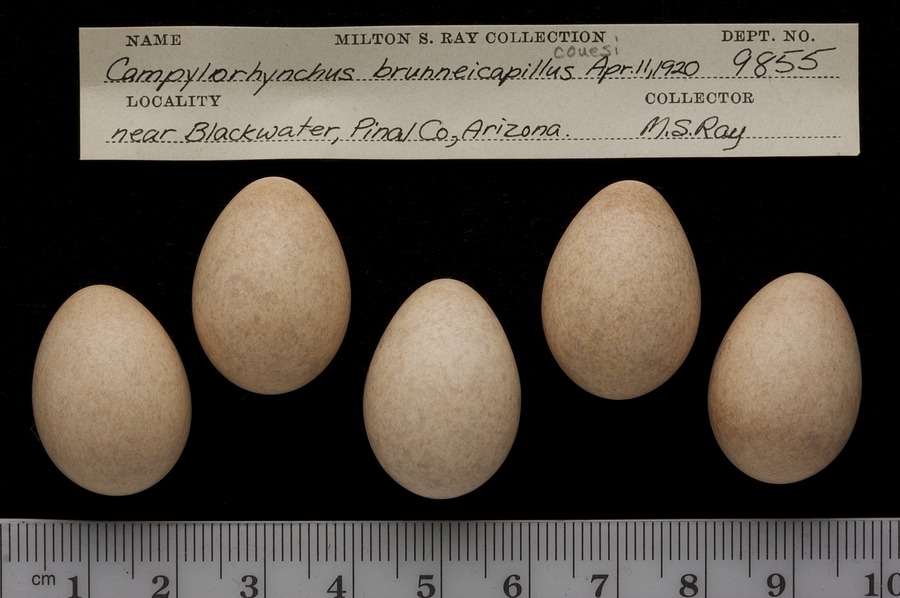 NAME MILTON S. RAY COLLECTION DEPT. NO.
couesi
Campylorhynchus brunneicapillus Apr.11,1920 9855
LOCALITY COLLECTOR
near Blackwater, Pinal Co, Arizona. M.S.Ray
cm 1 2 3 4 5 6 7 8 9 10